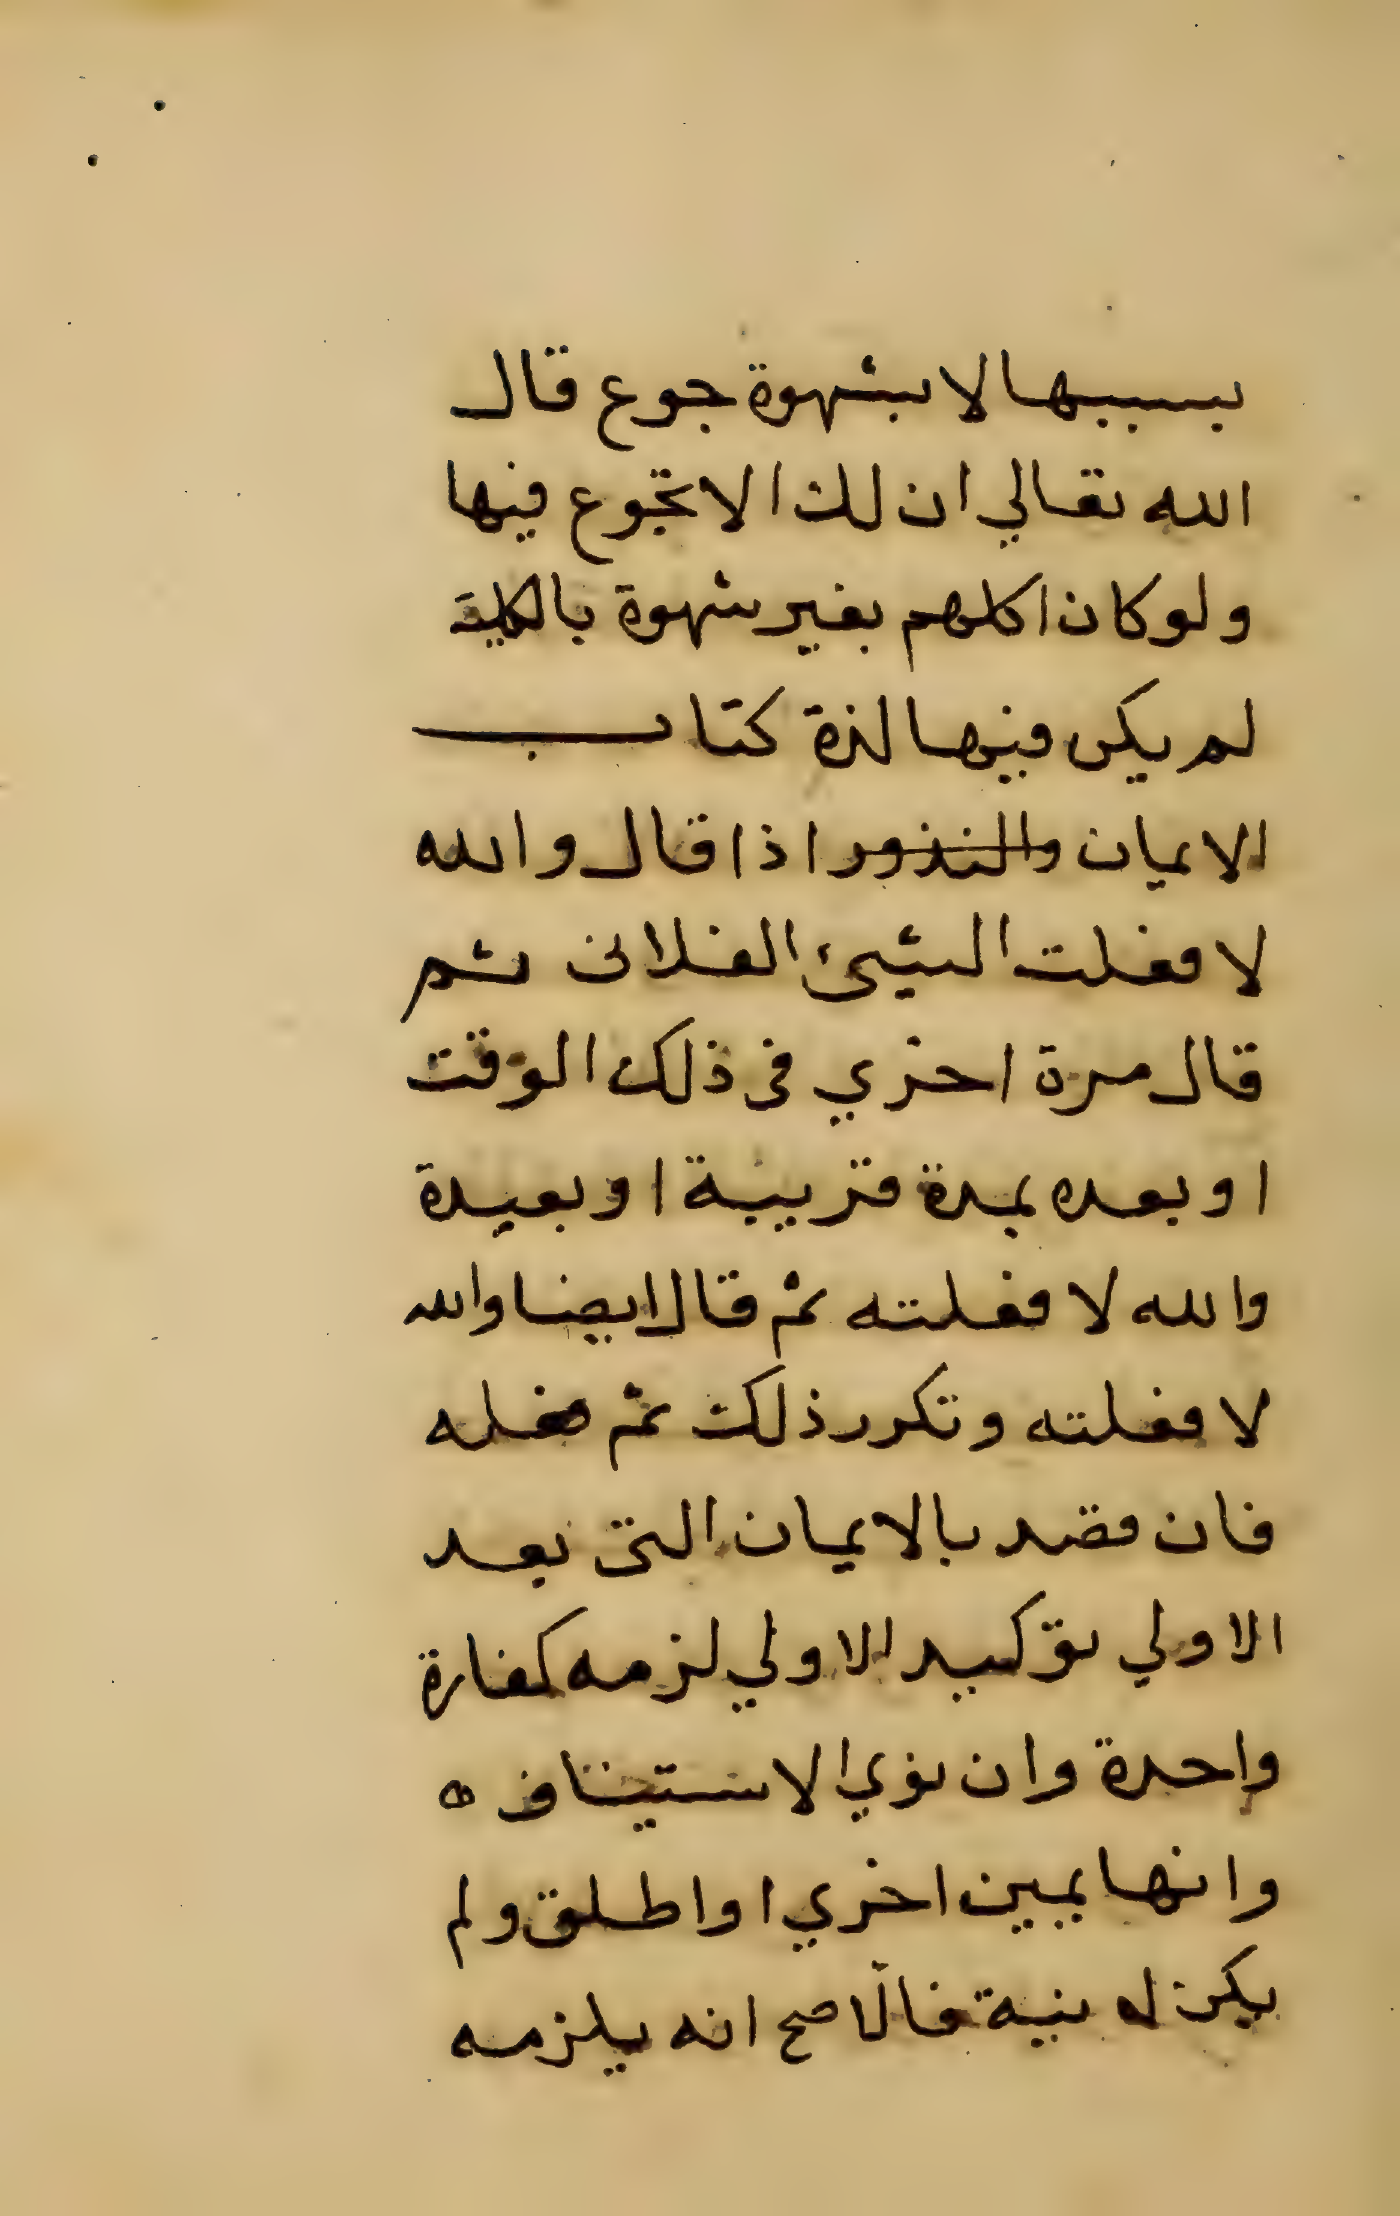 بسببها لا بشهوة جوع قال
الله تعالي ان لك الا تجوع فيها
ولو كان اكلهم بغير شهوة بالكلية
لم يكن فيها لذة كتاب
الايمان والنذور اذا قال والله
لا فعلت الشيئ الفلانى ثم
قال مرة اخري فى ذلك الوقت
او بعده بمدة قريبة او بعيدة
والله لا فعلته ثم قال ايضا والله
لا فعلته وتكرر ذلك ثم فعله
فان قصد بالايمان التى بعد
الاولي توكيد الاولي لزمه كفارة
واحدة وان نوي الاستيناف ه
وانها يمين اخري او اطلق ولم
يكن له نية فالاصح انه يلزمه